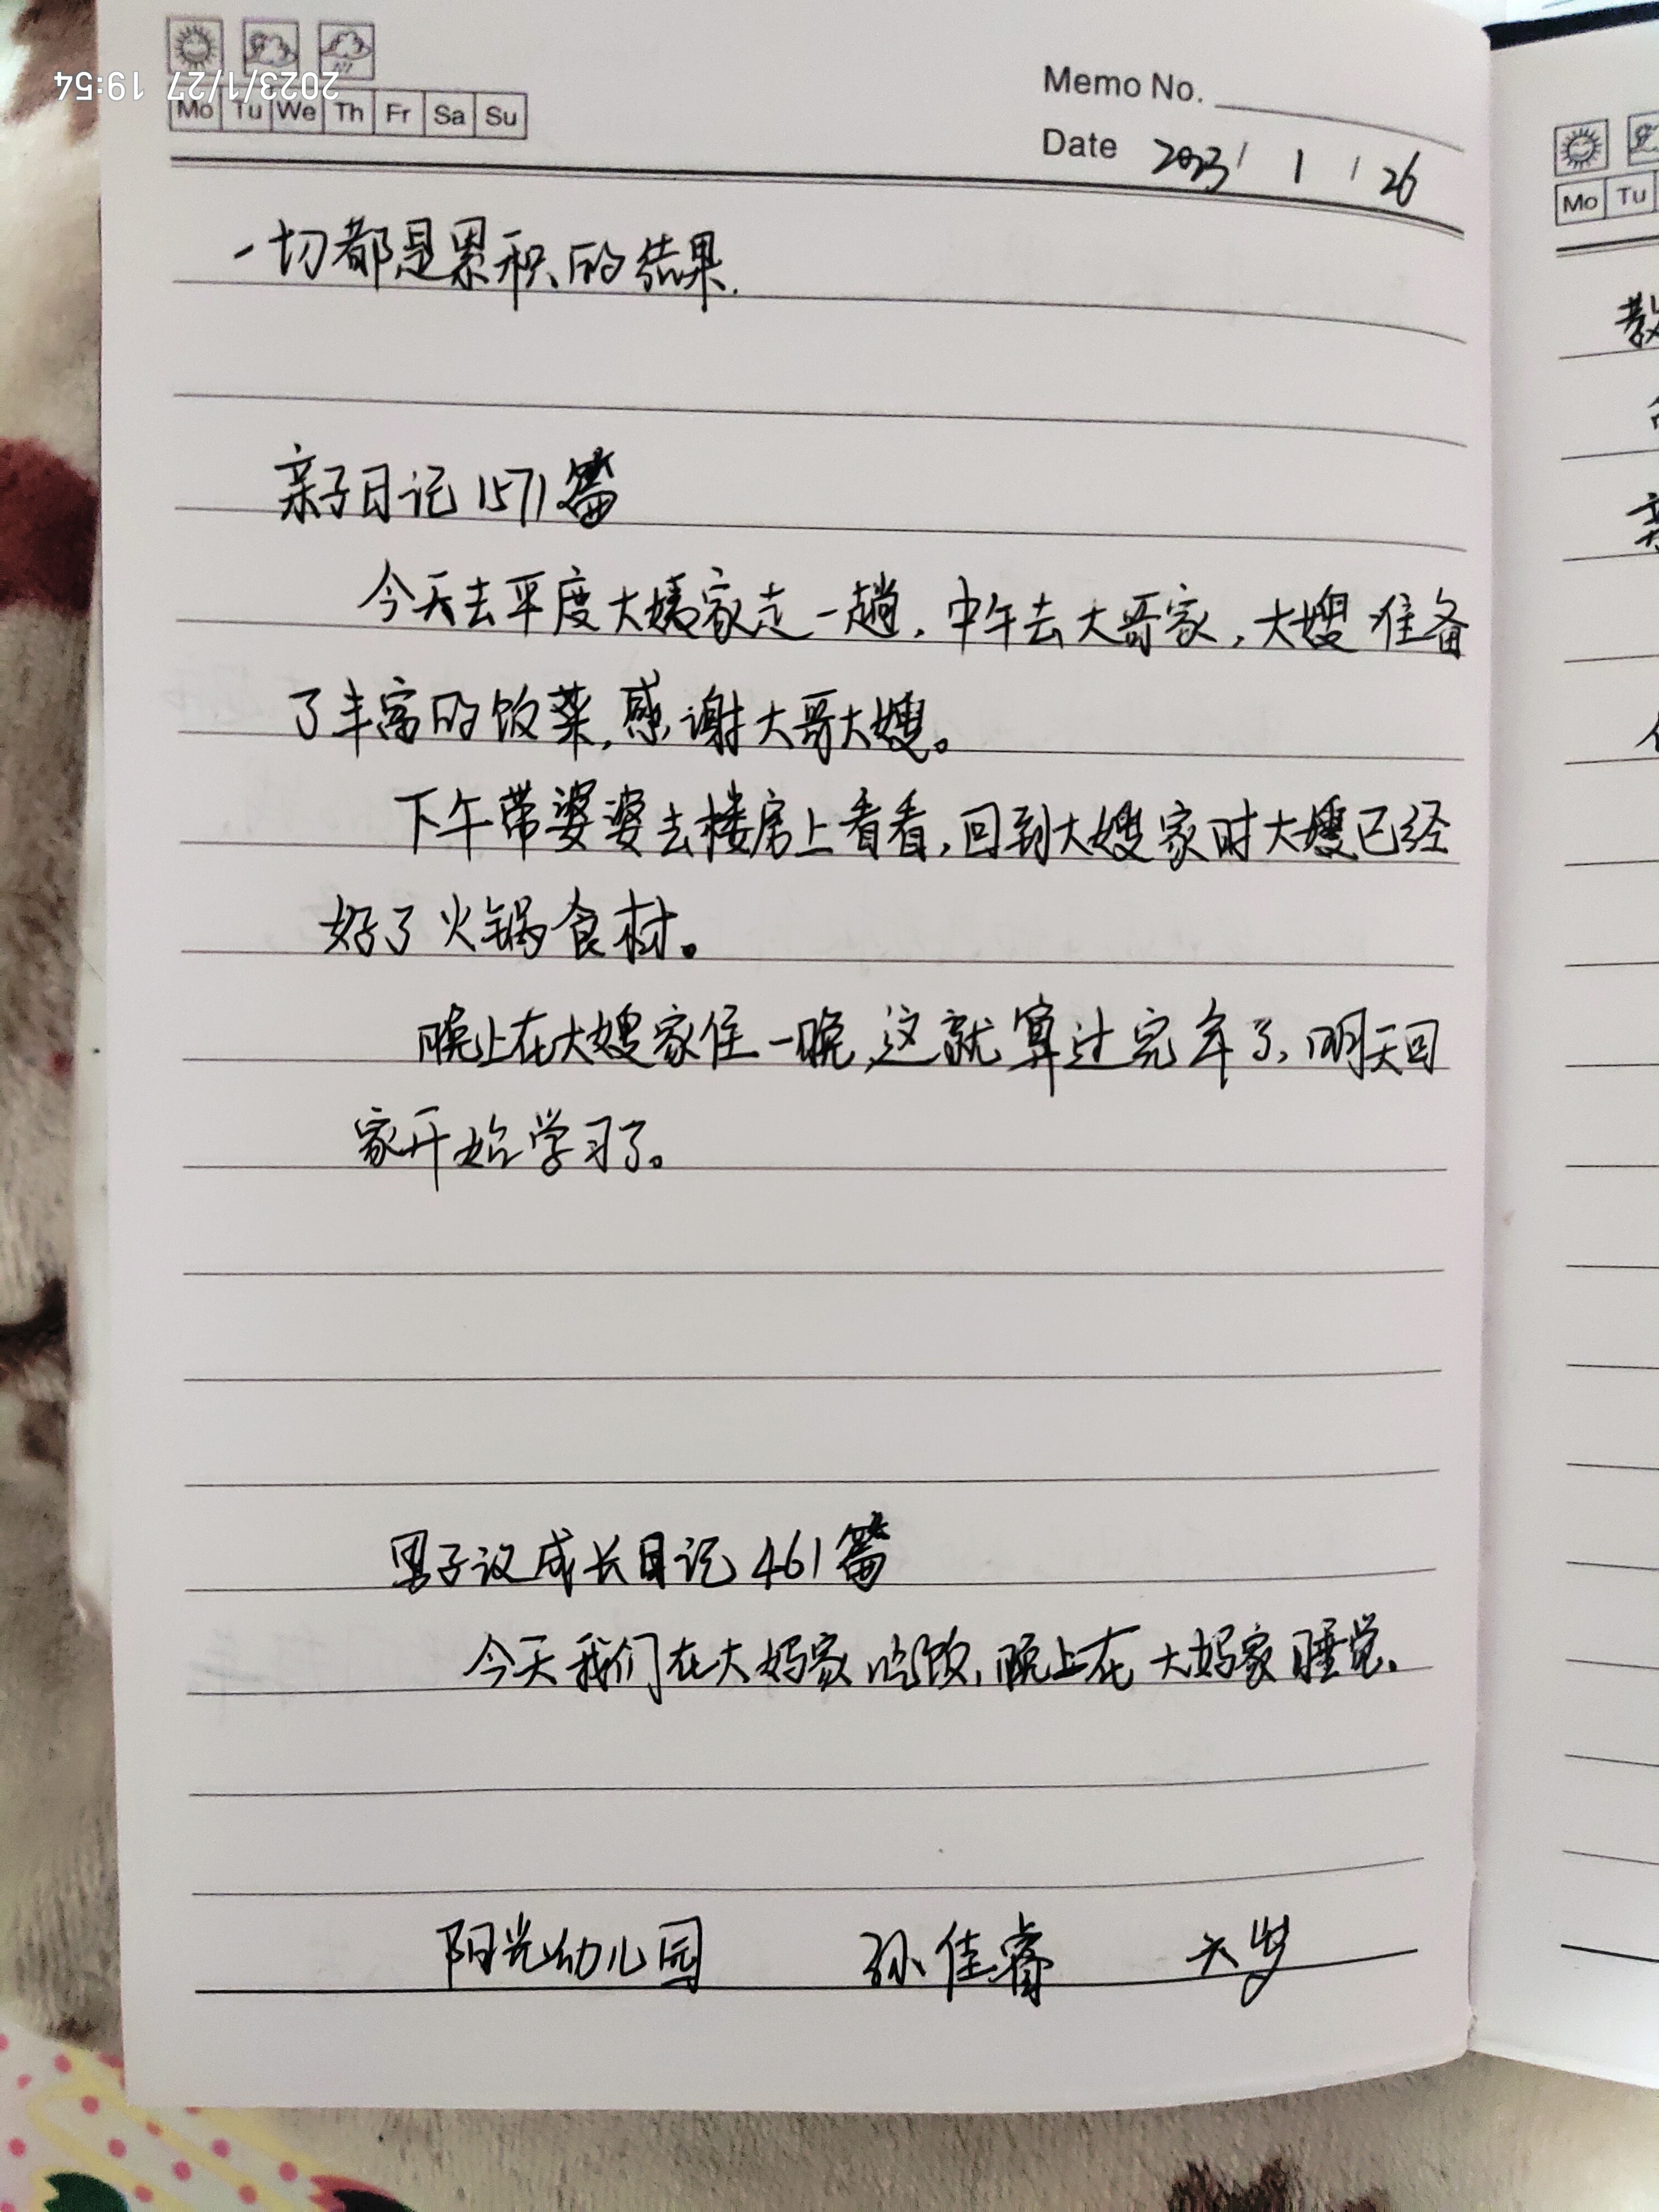 2023/1/27 19:54
Mo Tu We Th Fr Sa Su
Memo No.
Date 2023/ 1 / 26
一切都是累积的结果.
亲子日记1571篇
今天去平度大姨家走一趟,中午去大哥家,大嫂准备
了丰富的饭菜,感谢大哥大嫂。
下午带婆婆去楼房上看看,回到大嫂家时大嫂已经
好了火锅食材。
晚上在大嫂家住一晚,这就算过完年了,明天回
家开始学习了。
男子汉成长日记461篇
今天我们在大妈家吃饭,晚上在大妈家睡觉.
阳光幼儿园 孙佳睿 六岁
Mo Tu